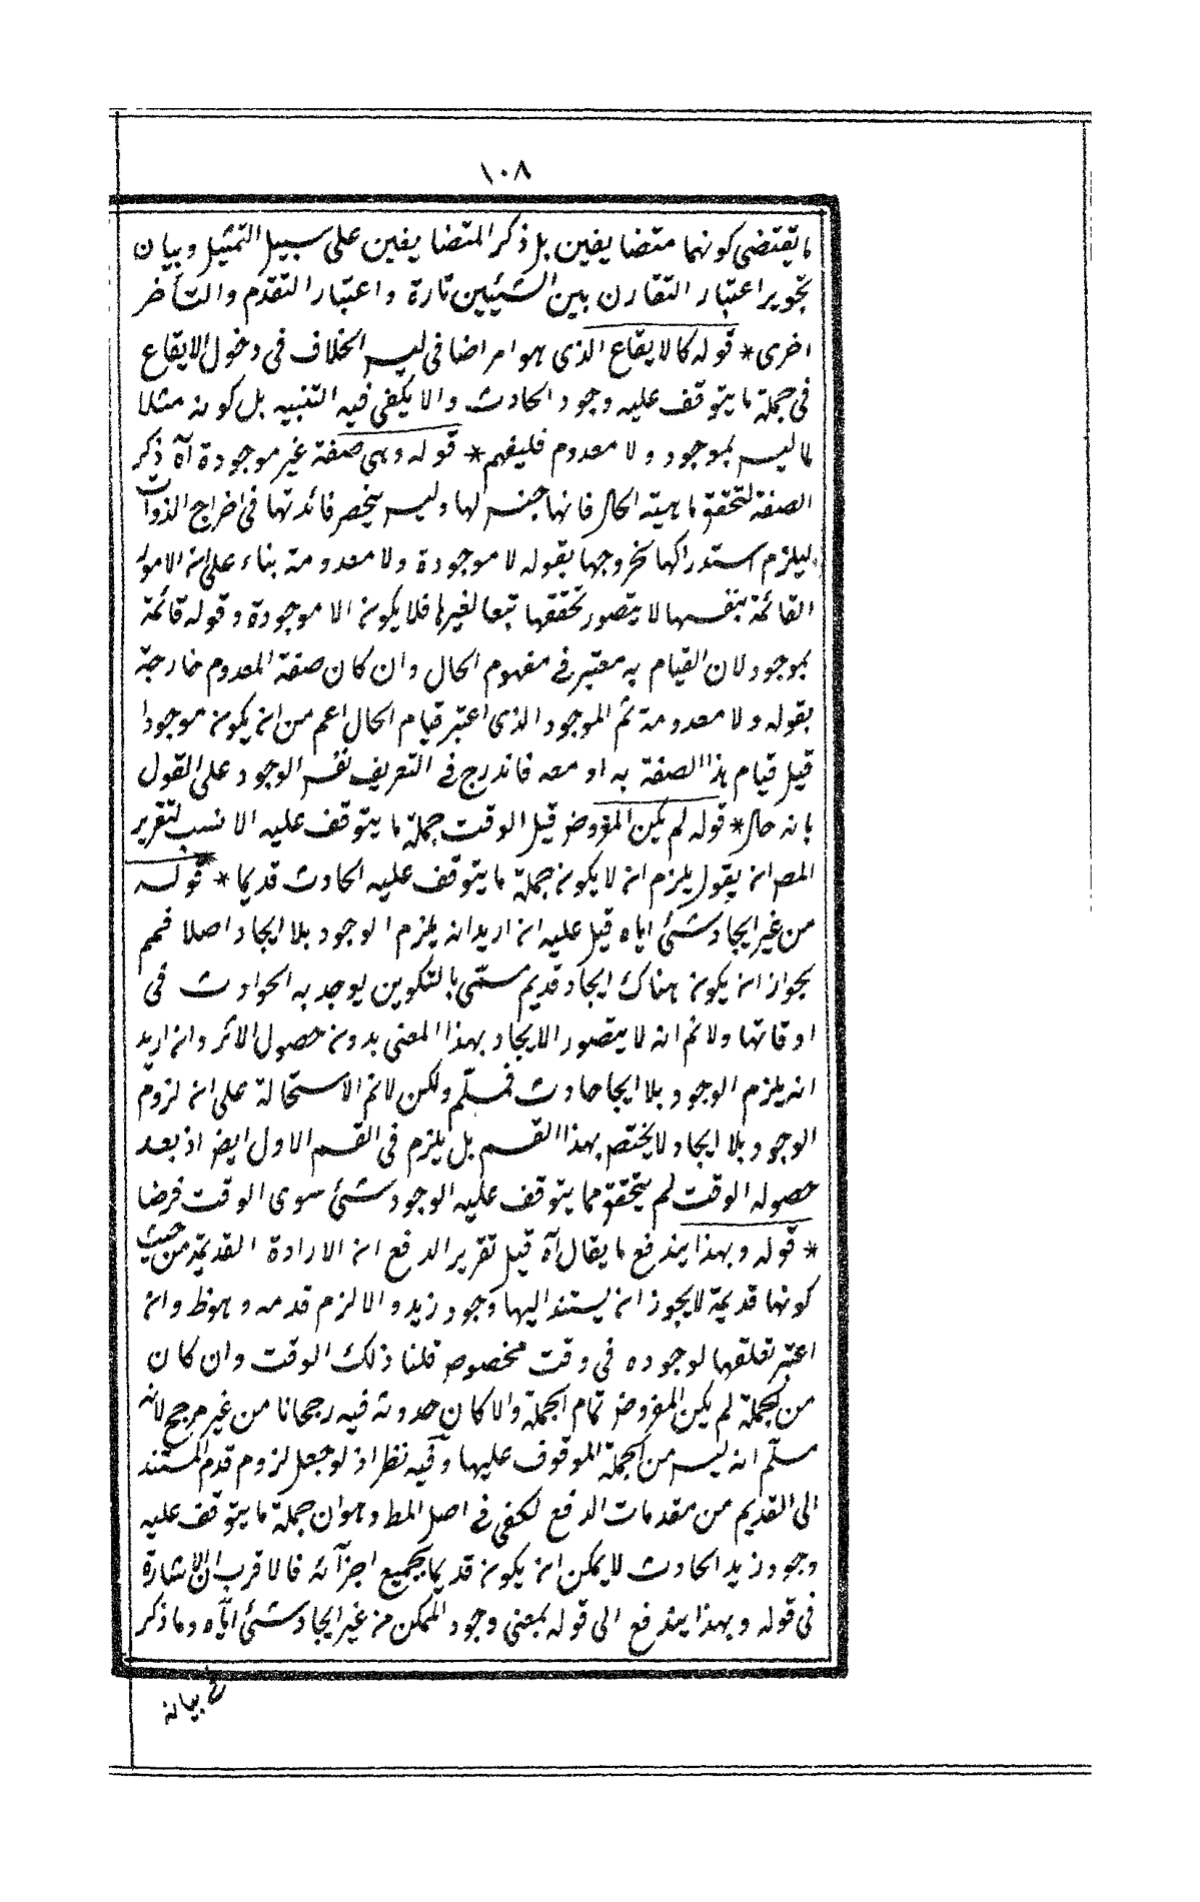 ١٠٨
ما يقتضى كونهما متضايفين بل ذكر المتضايفين على سبيل التمثيل وبيان
تجويز اعتبار التقارن بين الشيئين تارة واعتبار التقدم والتأخر
اخرى * قوله كالايقاع الذى هو امر اضافى ليس الخلاف فى دخول الايقاع
فى جملة ما يتوقف عليه وجود الحادث والا يكفى فيه التنبيه بل كونه مثلا
لما ليس بموجود ولا معدوم فليفهم * قوله وهى صفة غير موجودة آه ذكر
الصفة لتحقق ماهية الحال فانها جنس لها وليس ينحصر فائدتها فى اخراج الذوات
ليلزم استدراكها لخروجها بقوله لا موجودة ولا معدومة بناء على ان الامور
القائمة بنفسها لا يتصور تحققها تبعا لغيرها فلا يكون الا موجودة وقوله قائمة
بموجود لان القيام به معتبر فى مفهوم الحال وان كان صفة المعدوم خارجة
بقوله ولا معدومة ثم الموجود الذى اعتبر قيام الحال اعم من ان يكون موجودا
قبل قيام هذا الصفة به او معه فاندرج فى التعريف نفس الوجود على القول
بانه حال * قوله لم يكن المفروض قبل الوقت جملة ما يتوقف عليه الانسب لتقرير
المص ان يقول يلزم ان لا يكون جملة ما يتوقف عليه الحادث قديما * قوله
من غير ايجاد شئ اياه قيل عليه ان اريد انه يلزم الوجود بلا ايجاد اصلا فمم
بجواز ان يكون هناك ايجاد قديم مسمّى بالتكوين يوجد به الحوادث فى
اوقاتها ولانم انه لا يتصور الايجاد بهذا المعنى بدون حصول الاثر وان اريد
انه يلزم الوجود بلا ايجا حادث فمسلّم ولكن لانم الاستحالة على ان لزوم
الوجود بلا ايجاد لا يختص بهذا القسم بل يلزم فى القسم الاول ايض اذ بعد
حصوله الوقت لم يتحقق مما يتوقف عليه الوجود شئ سوى الوقت فرضا
* قوله وبهذا يندفع ما يقال آه قيل تقرير الدفع ان الارادة القديمة من حيث
كونها قديمة لا يجوز ان يستند اليها وجود زيد والا لزم قدمه وهوظ وان
اعتبر تعلقها لوجوده فى وقت مخصوص قلنا ذلك الوقت وان كان
من الجملة لم يكن المفروض تمام الجملة والا كان حدوثه فيه رجحانا من غير مرجح لانه
مسلّم انه ليس من الجملة الموقوف عليها وفيه نظر اذ لو جعل لزوم قدم المستند
الى القديم من مقدمات الدفع لكفى فى اصل المط وهو ان جملة ما يتوقف عليه
وجود زيد الحادث لا يمكن ان يكون قديما بجميع اجزآئه فالاقرب ان الاشارة
فى قوله وبهذا يندفع الى قوله بمعنى وجود الممكن من غير ايجاد شئ ايّاه وما ذكر
بيانه